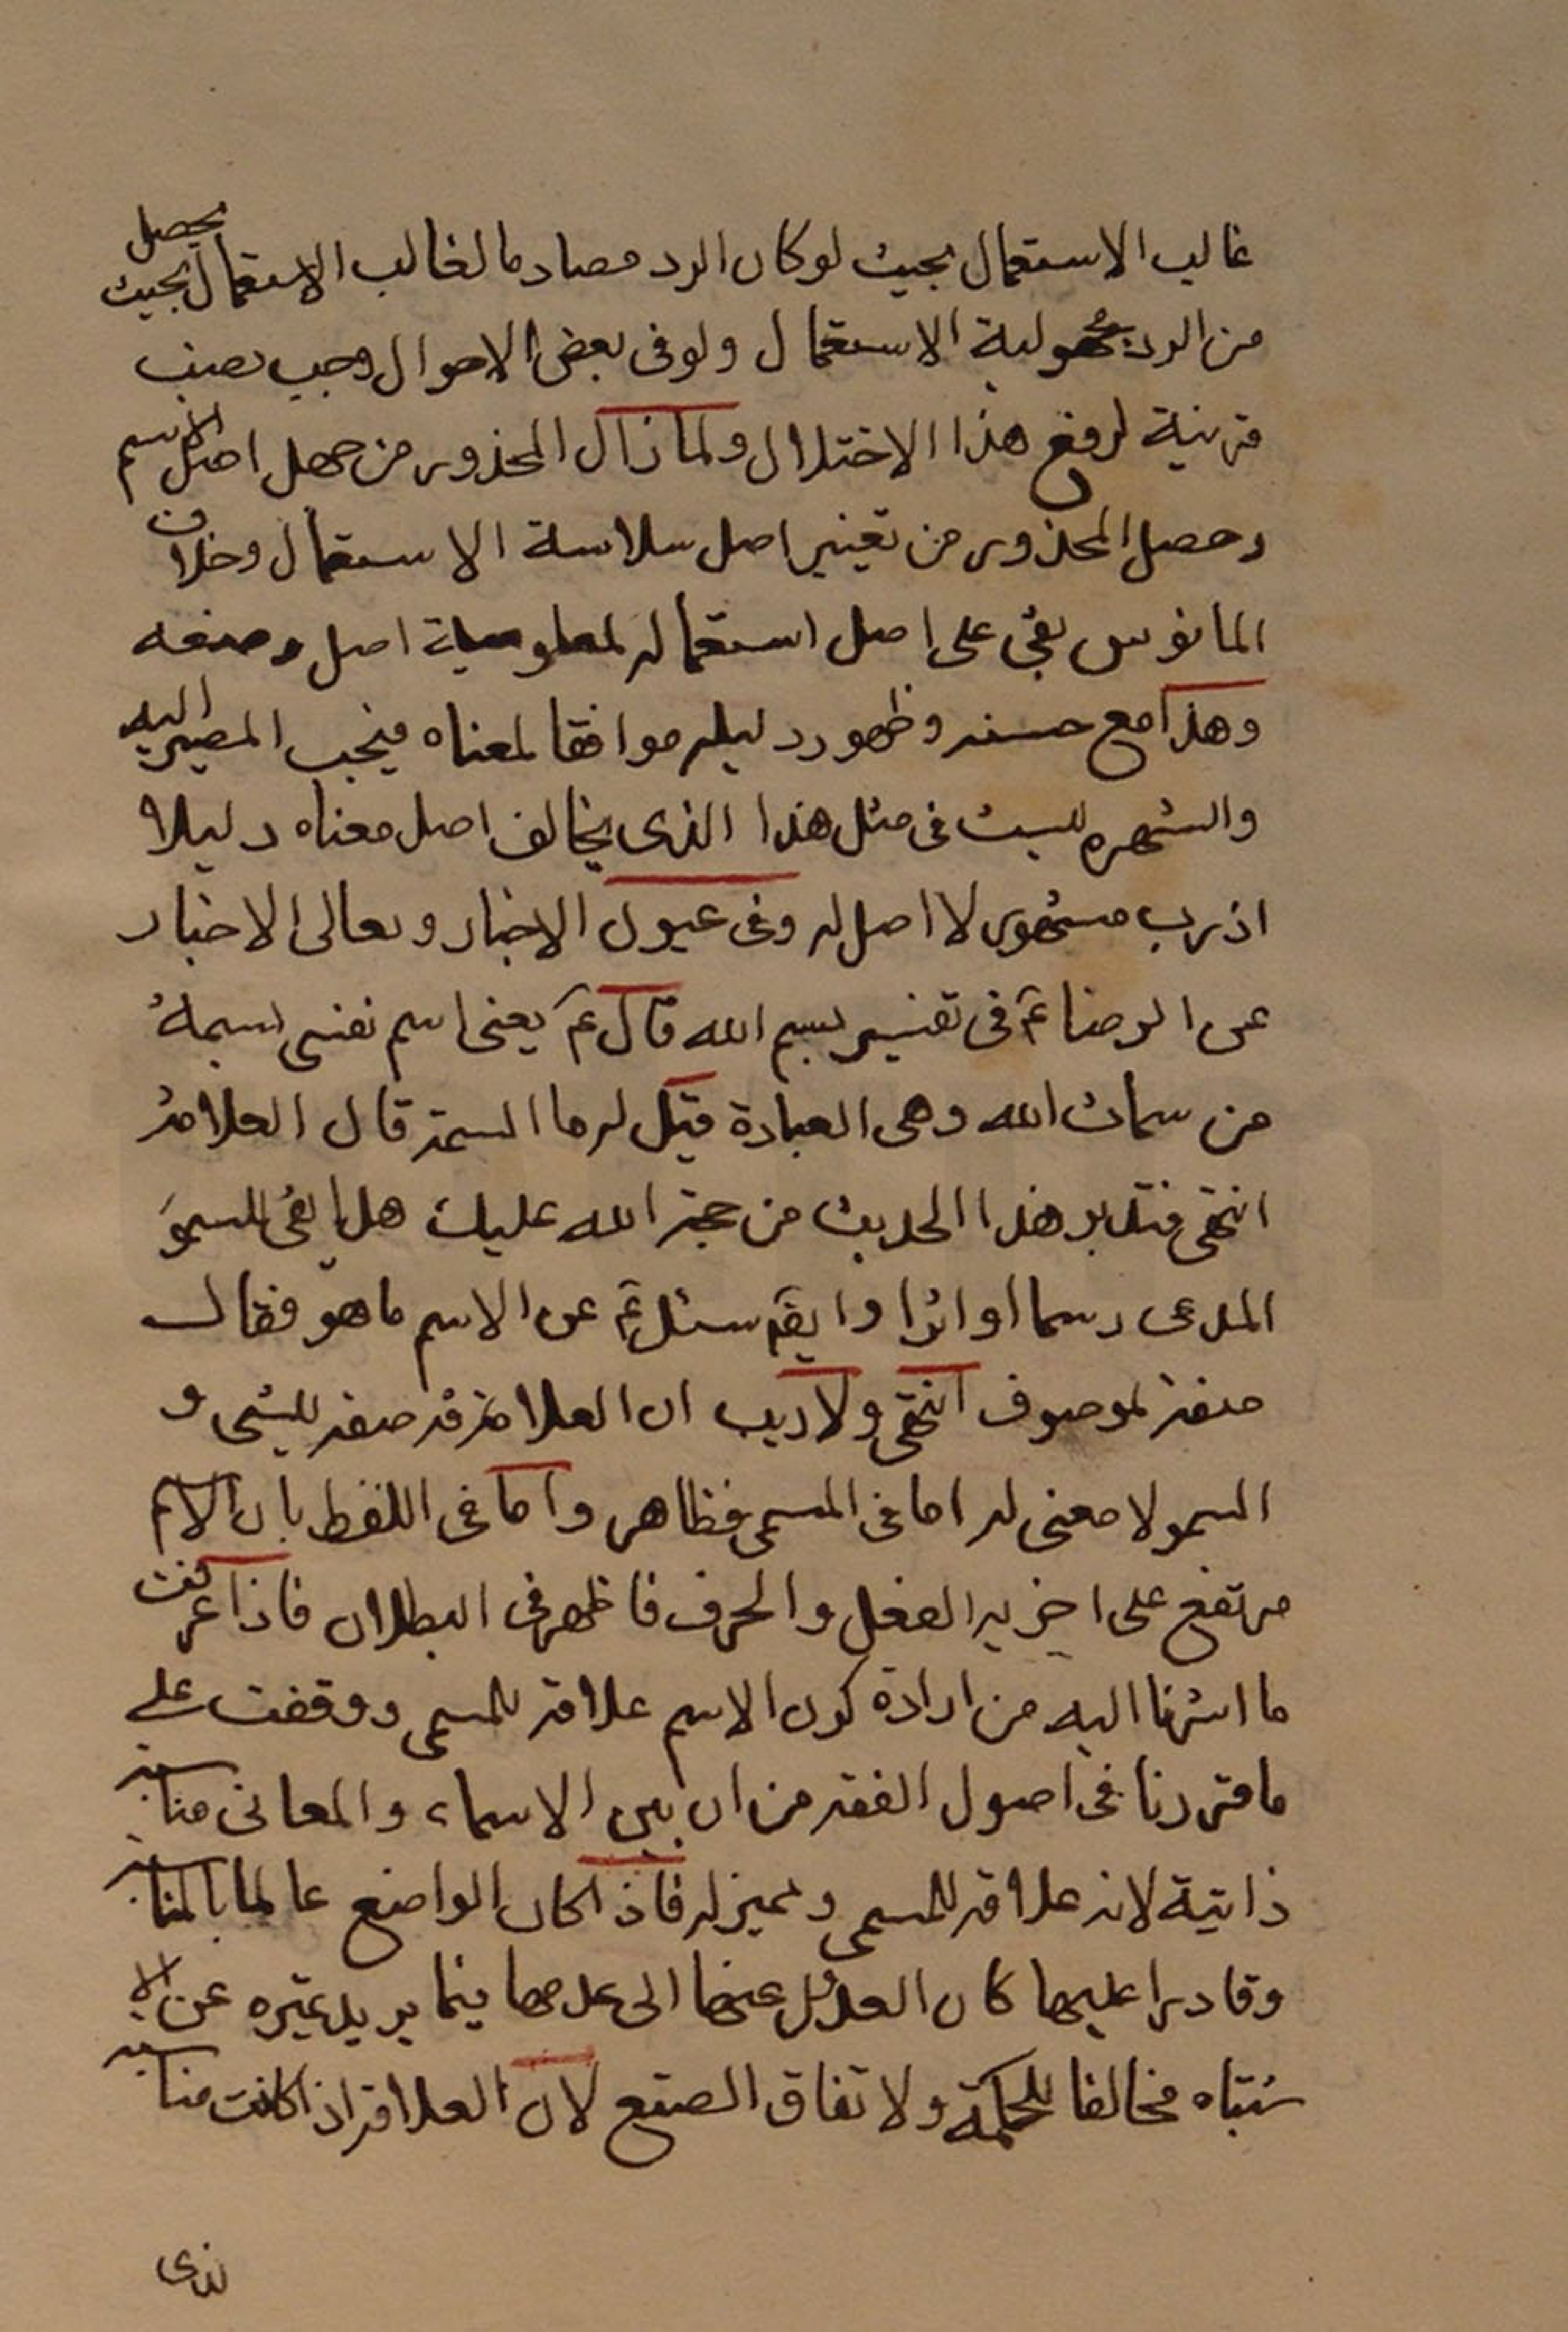 غالب الاستعمال بحيث لو كان الرد مصادما لغالب الاستعمال بحيث يحصل
من الرد مجهولية الاستعمال ولو فى بعض الاحوال وجب نصب
قرينية لرفع هذا الاختلال ولما زال المحذور من جهل اصل الاسم
وحصل المحذور من تغيير اصل سلاسة الاستعمال وخلاف
المانوس بقى على اصل استعماله لمعلومية اصل وضعه
وهذا مع حسنه وظهور دليله موافقا لمعناه فيجب المصير اليه
والشهره ليست فى مثل هذا الذى يخالف اصل معناه دليلا
اذ رب مشهور لا اصل له وفى عيون الاخبار ومعانى الاخبار
عن الرضا عم فى تفسير بسم الله قال عم يعنى اسم نفسى بسمة
من سمات الله وهى العبادة قيل له ما السمة قال العلامة
انتهى فتدبر هذا الحديث من حجة الله عليك هل ابقى للسمو
المدعى رسما او اثرا وايضم سئل عم عن الاسم ما هو فقال
صفة لموصوف انتهى ولا ريب ان العلامة صفة للشى و
السمو لا معنى له اما فى المسمى فظاهر واما فى اللفظ بان الاسم
مرتفع على اخويه الفعل والحرف فاظهر فى البطلان فاذا عرفت
ما اشرنا اليه من ارادة كون الاسم علامة للمسمى ووقفت على
ما قررنا فى اصول الفقه من ان بين الاسماء والمعانى مناسبة
ذاتية لانه علامة للمسمى ومميز له فاذا كان الواضع عالما بالمناسبة
وقادرا عليها كان العدول عنها الى عدمها فيما يريد تميزه عن الا
شتباه مخالفا للحكمة ولاتقان الصنع لان العلامة اذا كانت مناسبة
لذى